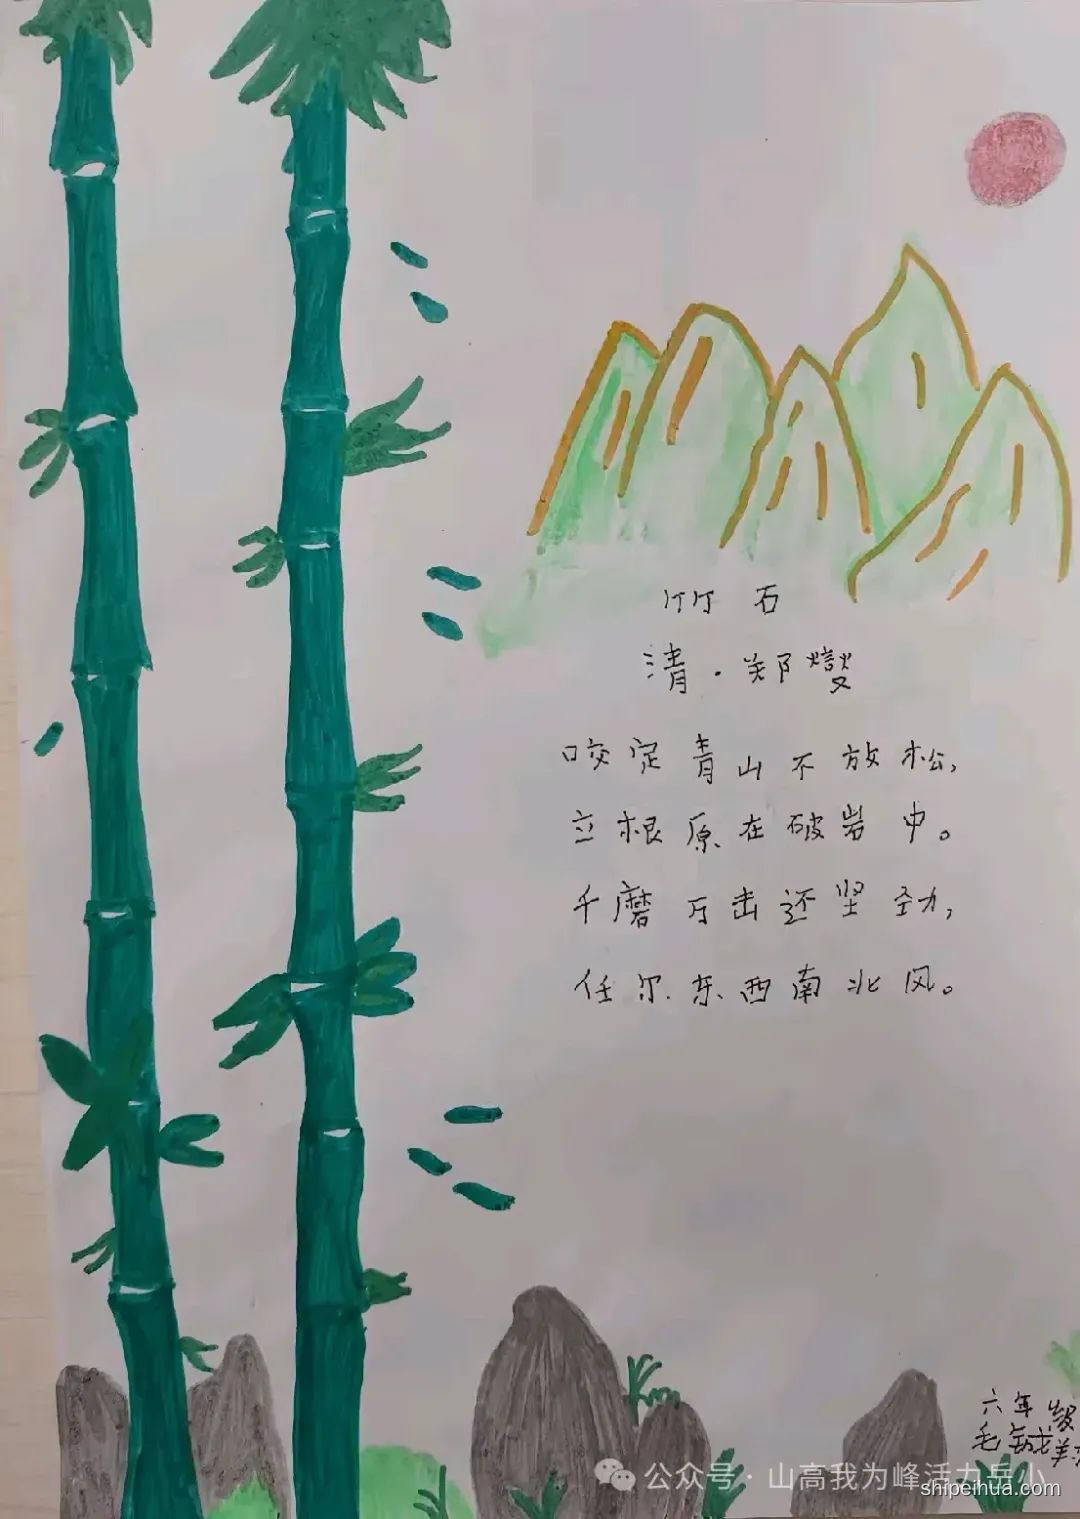 竹石
清·郑燮
咬定青山不放松,
立根原在破岩中。
千磨万击还坚劲,
任尔东西南北风。
六年级
毛
公众号·山高我为峰活力岳小
shipeihua.com